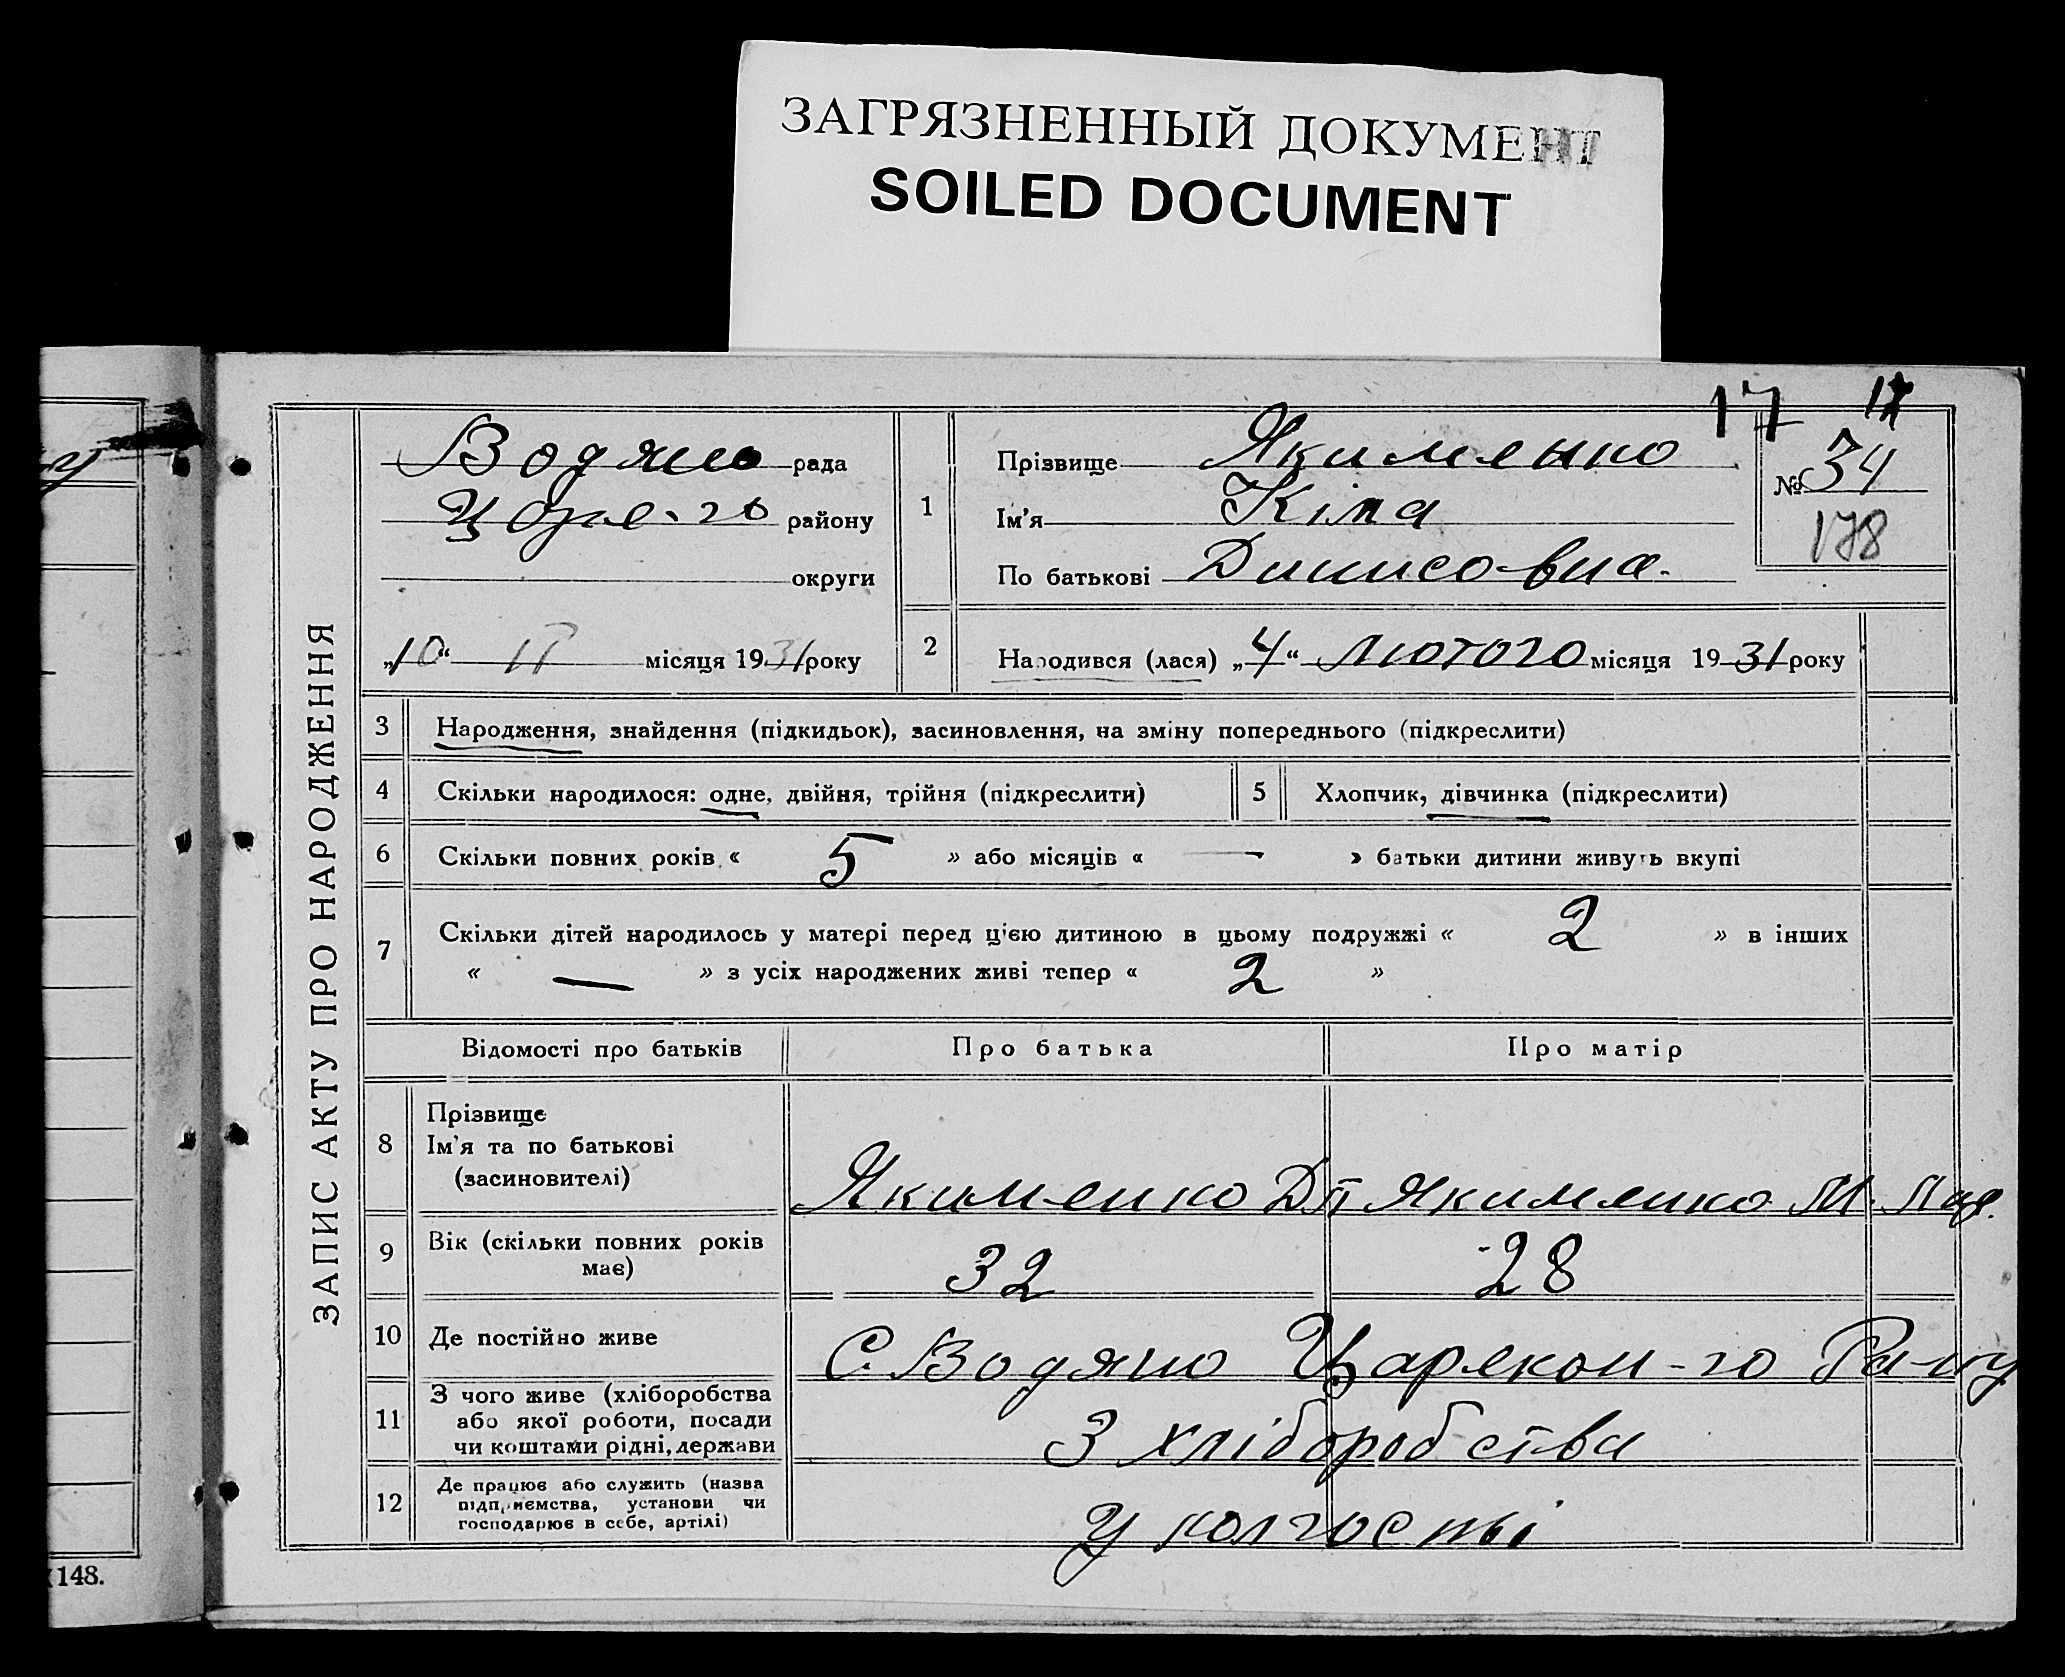 ЗАГРЯЗНЕННЫЙ ДОКУМЕНТ
SOILED DOCUMENT
17
ЗАПИС АКТУ ПРО НАРОДЖЕННЯ
Водяно рада
району
округи
„10“ II місяця 1931 року
1
Прізвище Якименко
Ім'я Кіма
По батькові Динисовна.
№ 34
178
2 Народився (лася) „4“ Лютого місяця 1931 року
3 Народження, знайдення (підкидьок), засиновлення, на зміну попереднього (підкреслити)
4 Скільки народилося: одне, двійня, трійня (підкреслити) 5 Хлопчик, дівчинка (підкреслити)
6 Скільки повних років « 5 » або місяців « — » батьки дитини живуть вкупі
7 Скільки дітей народилось у матері перед цією дитиною в цьому подружжі « 2 » в інших
« — » з усіх народжених живі тепер « 2 »
Відомості про батьків Про батька Про матір
8 Прізвище
Ім'я та по батькові
(засиновителі)
Якименко Дп Якименко М. Пар.
9 Вік (скільки повних років має) 32 28
10 Де постійно живе С. Водяно Царекон-го Ра-ну
11 З чого живе (хліборобства
або якої роботи, посади
чи коштами рідні, держави
З хліборобства
12 Де працює або служить (назва
підприємства, установи чи
господарює в себе, артілі)
У колгоспі
148.